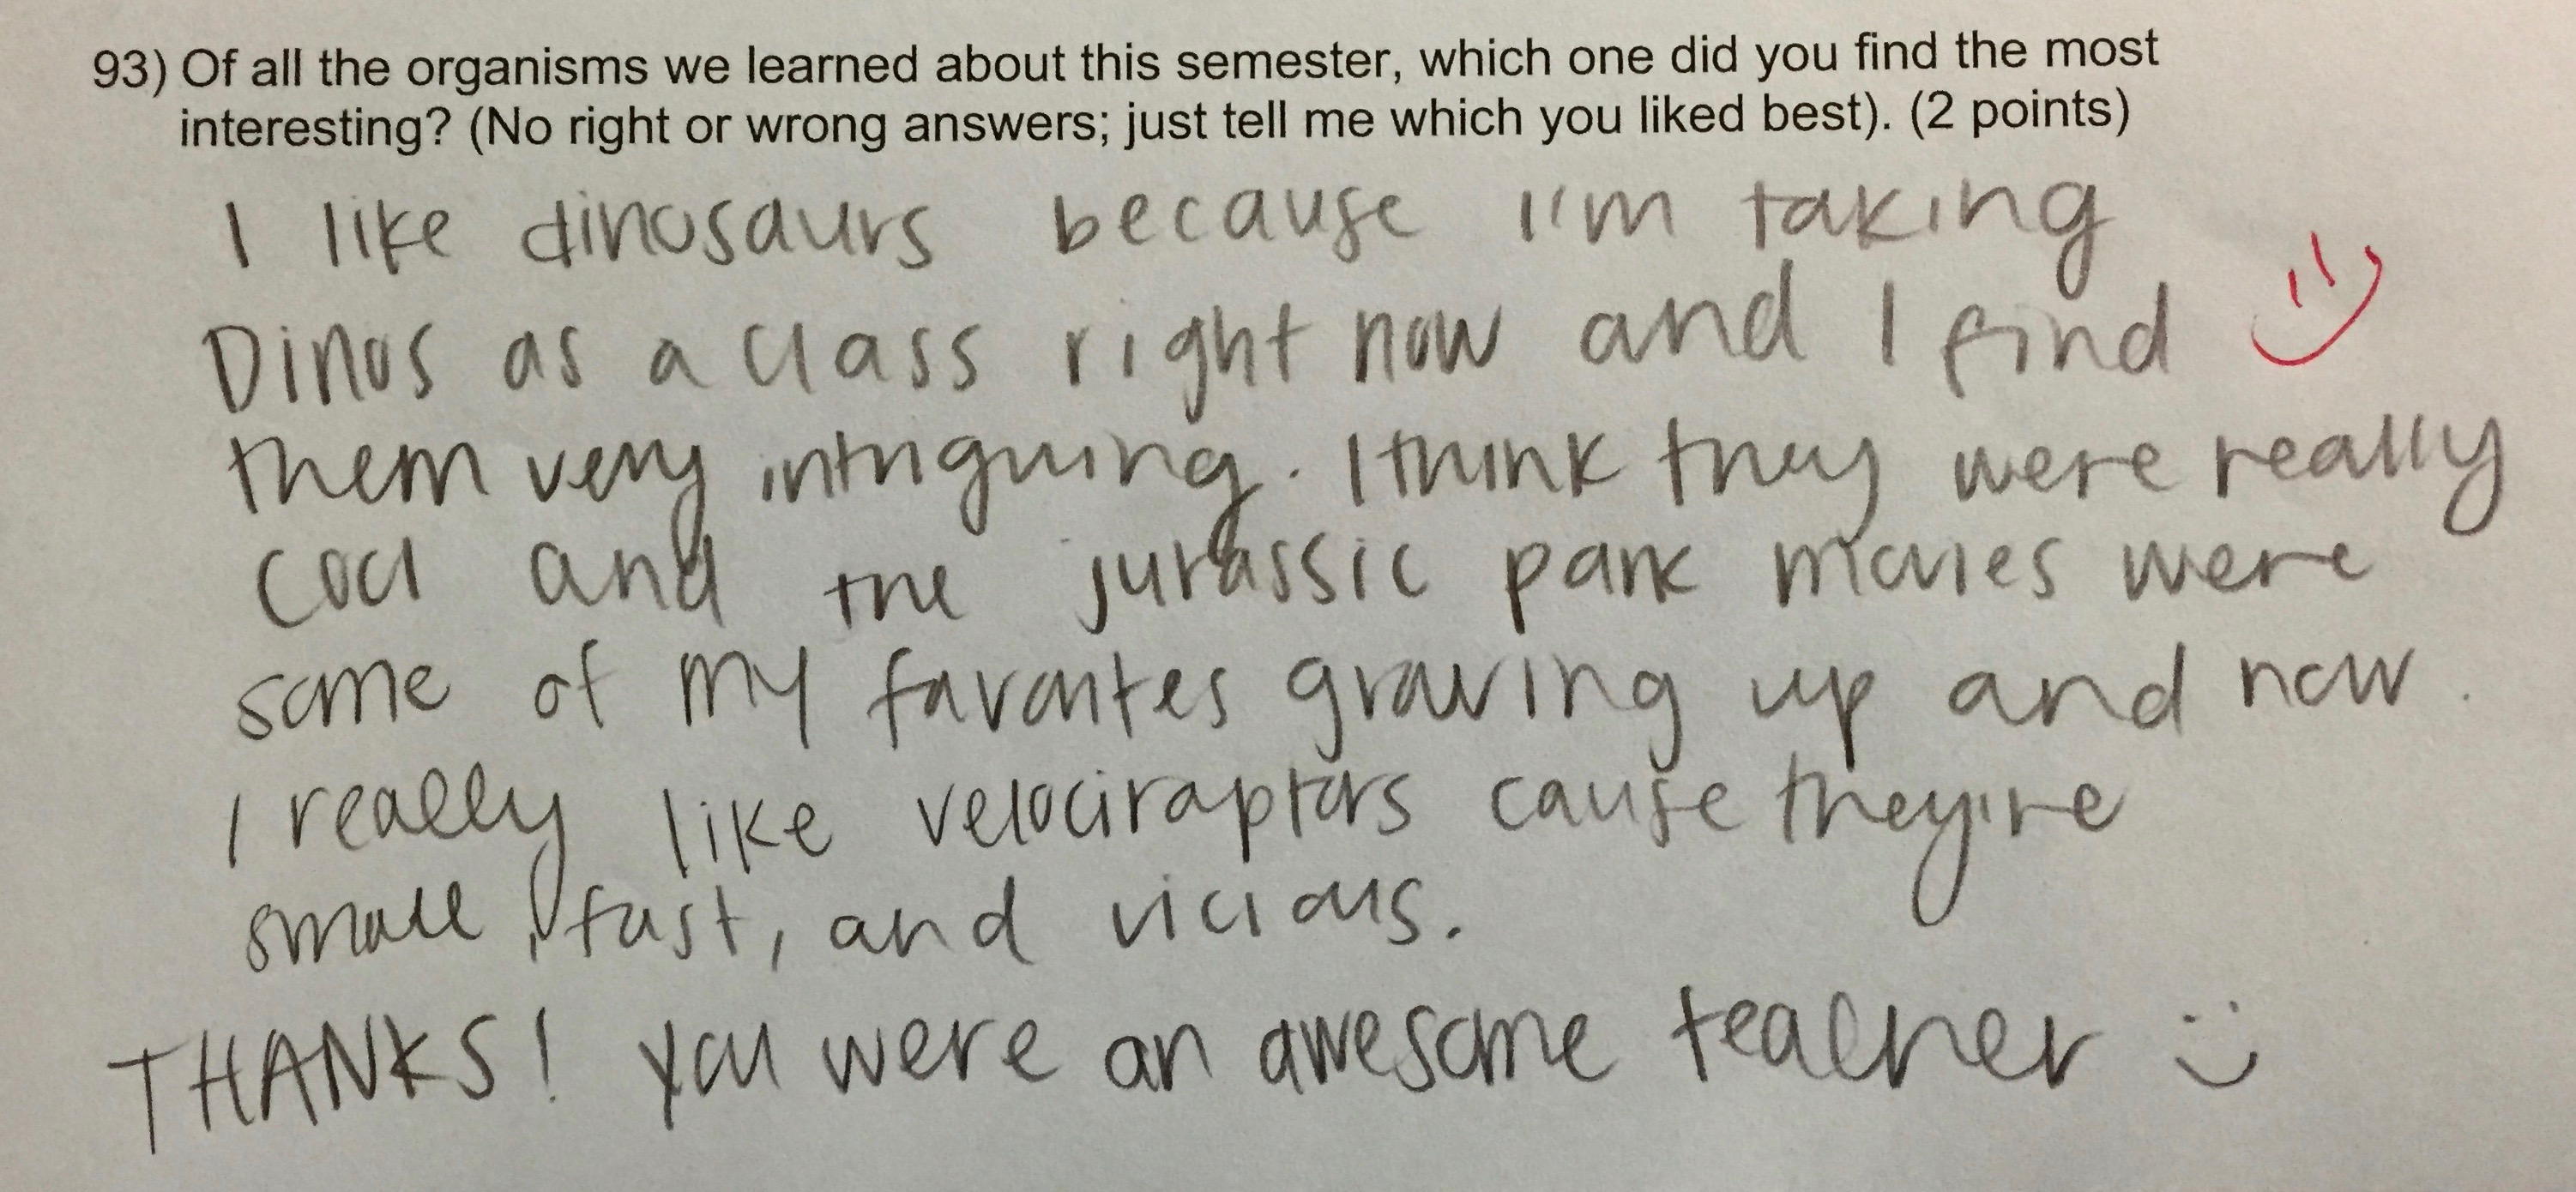 93) Of all the organisms we learned about this semester, which one did you find the most
interesting? (No right or wrong answers; just tell me which you liked best). (2 points)
I like dinosaurs because I'm taking
Dinos as a class right now and I find
them very intriguing. I think they were really
cool and the jurassic park movies were
some of my favorites growing up and now.
I really like velociraptors cause they're
small, fast, and vicious.
THANKS! You were an awesome teacher :)